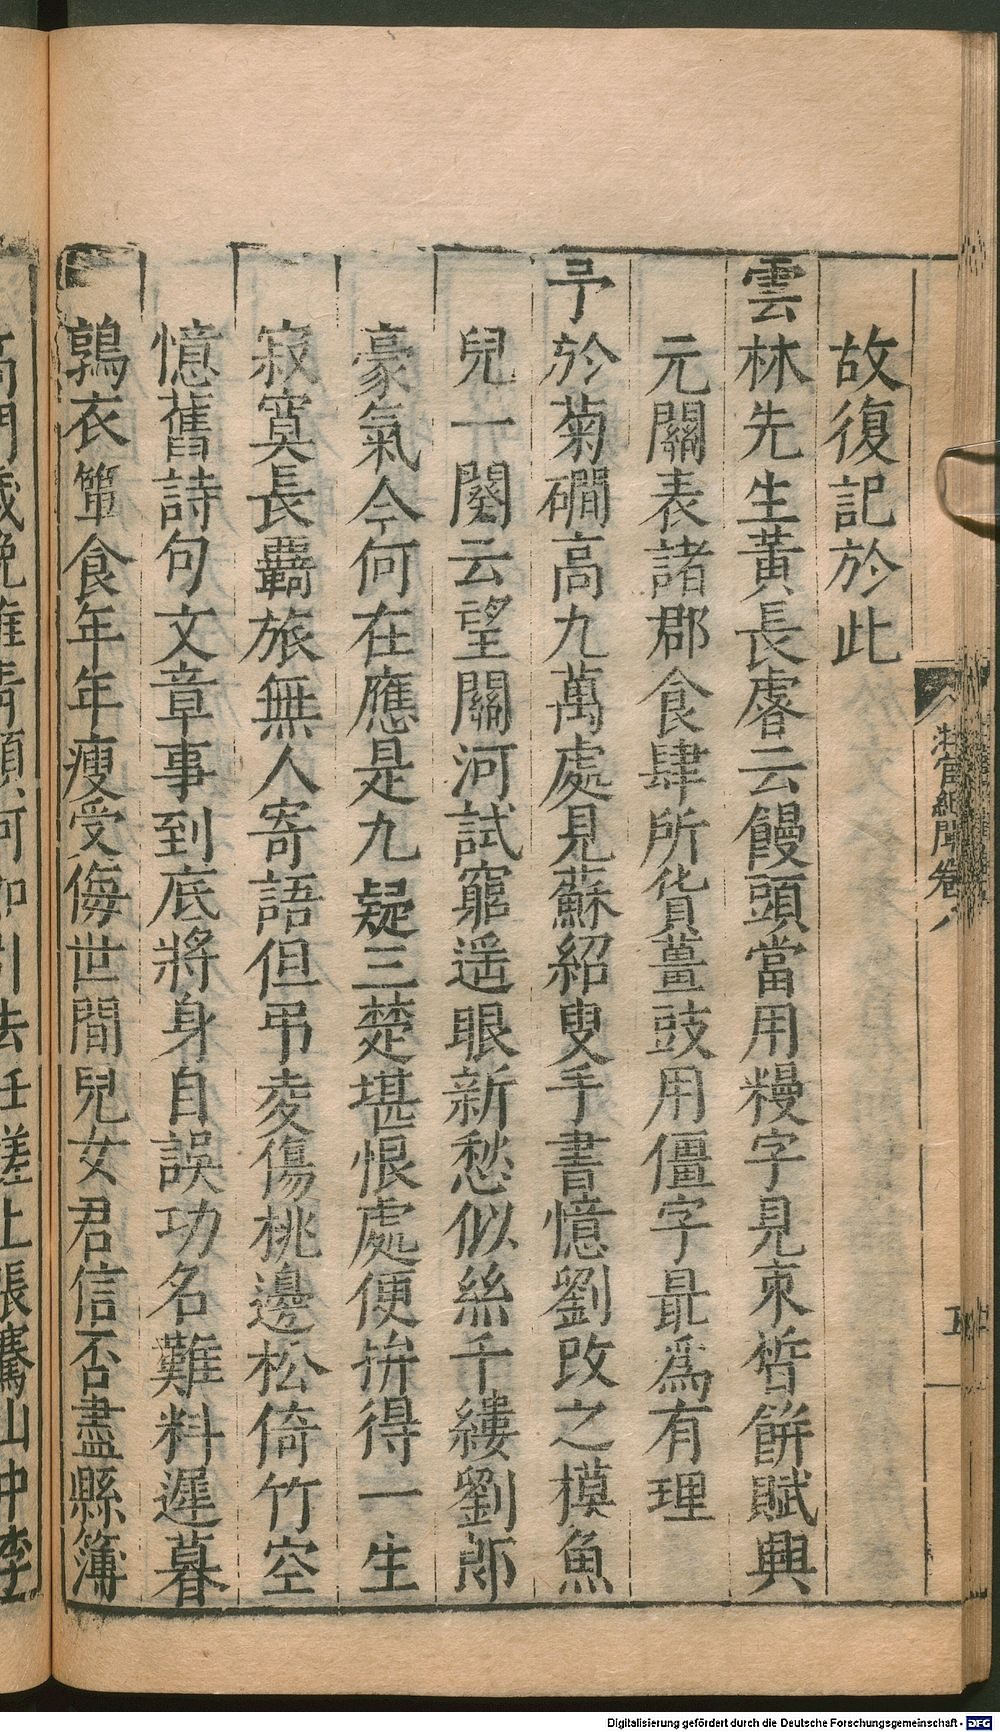 故復記於此
雲林先生黃長睿云饅頭當用糗字見束皙餅賦興
元關表諸郡食肆所貨薑豉用僵字最爲有理
予於菊磵高九萬處見蘇紹叟手書憶劉改之模魚
兒一闋云望關河試窮遥眼新愁似絲千縷劉郎
豪氣今何在應是九疑三楚堪恨處便拚得一生
寂寞長羈旅無人寄語但弔麥傷桃邊松倚竹空
憶舊詩句文章事到底將身自誤功名難料遲暮
鶉衣簞食年年瘦受侮世間兒女君信否盡縣簿
高門歲晚誰青顧何如引去任槎上張騫山中李
卷八
Digitalisierung gefördert durch die Deutsche Forschungsgemeinschaft - DFG